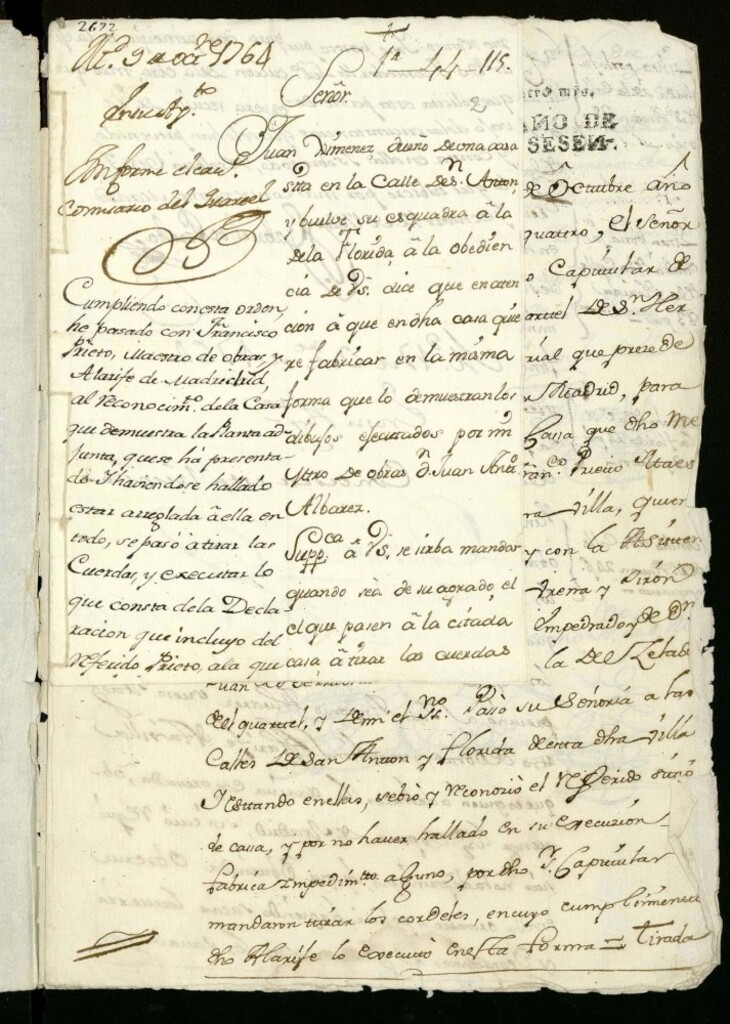 2672
Md. 9 de octre 1764
1ª 44 115.
2
Señor.
Juan Ximenez dueño de una casa
sita en la Calle de Sn. Anton,
y buelve su esquadra â la
de la Florida â la obedien
cia de Vs. dice que en aten
cion â que en dha casa quie
re fabricar en la misma
forma que lo demuestran los
dibujos ejecutados por mi
Mtro de obras Dn. Juan Antº
Albarez.
Suppca. â Vs. se sirba mandar
quando sea de su agrado el
el que pasen â la citada
casa â tirar las cuerdas
Informe el cav.
Comisario del Quartel
Cumpliendo con esta orden
he pasado con Francisco
Prieto, Maestro de obras, y
Alarife de Madrid,
al reconocimto. de la Casa
que demuestra la Planta ad-
junta, que se há presenta-
do. I haviendose hallado
estar arreglada â ella en
todo, se pasó a tirar las
Cuerdas, y executar lo
que consta de la Decla
racion que incluyo del
referido Prieto, a la que
AÑO DE
SESEN
de Octubre año
quattro, el señor
o Capitular de
quartel de Sn. Her
rial que prezede
Madrid, para
Cassa que dho Me
Prieto Alaes
ra Villa, quien
y con la Asisten
trena y Girón
Empedrador de Dn.
la de Zelad
del quartel, y de mi el ssno. Passó su Señoria a las
Calles de San Anton y Florida de esta dha Villa
I estando en ellas, se bió y reconozió el referido sitio
de cassa, y por no haver hallado en su execuzión
fabrica impedimtto. alguno, por dho sr. Capitular
mandaron tirar los cordeles, en cuyo cumplimientto
dho Alarife lo executó en esta forma = Tirada